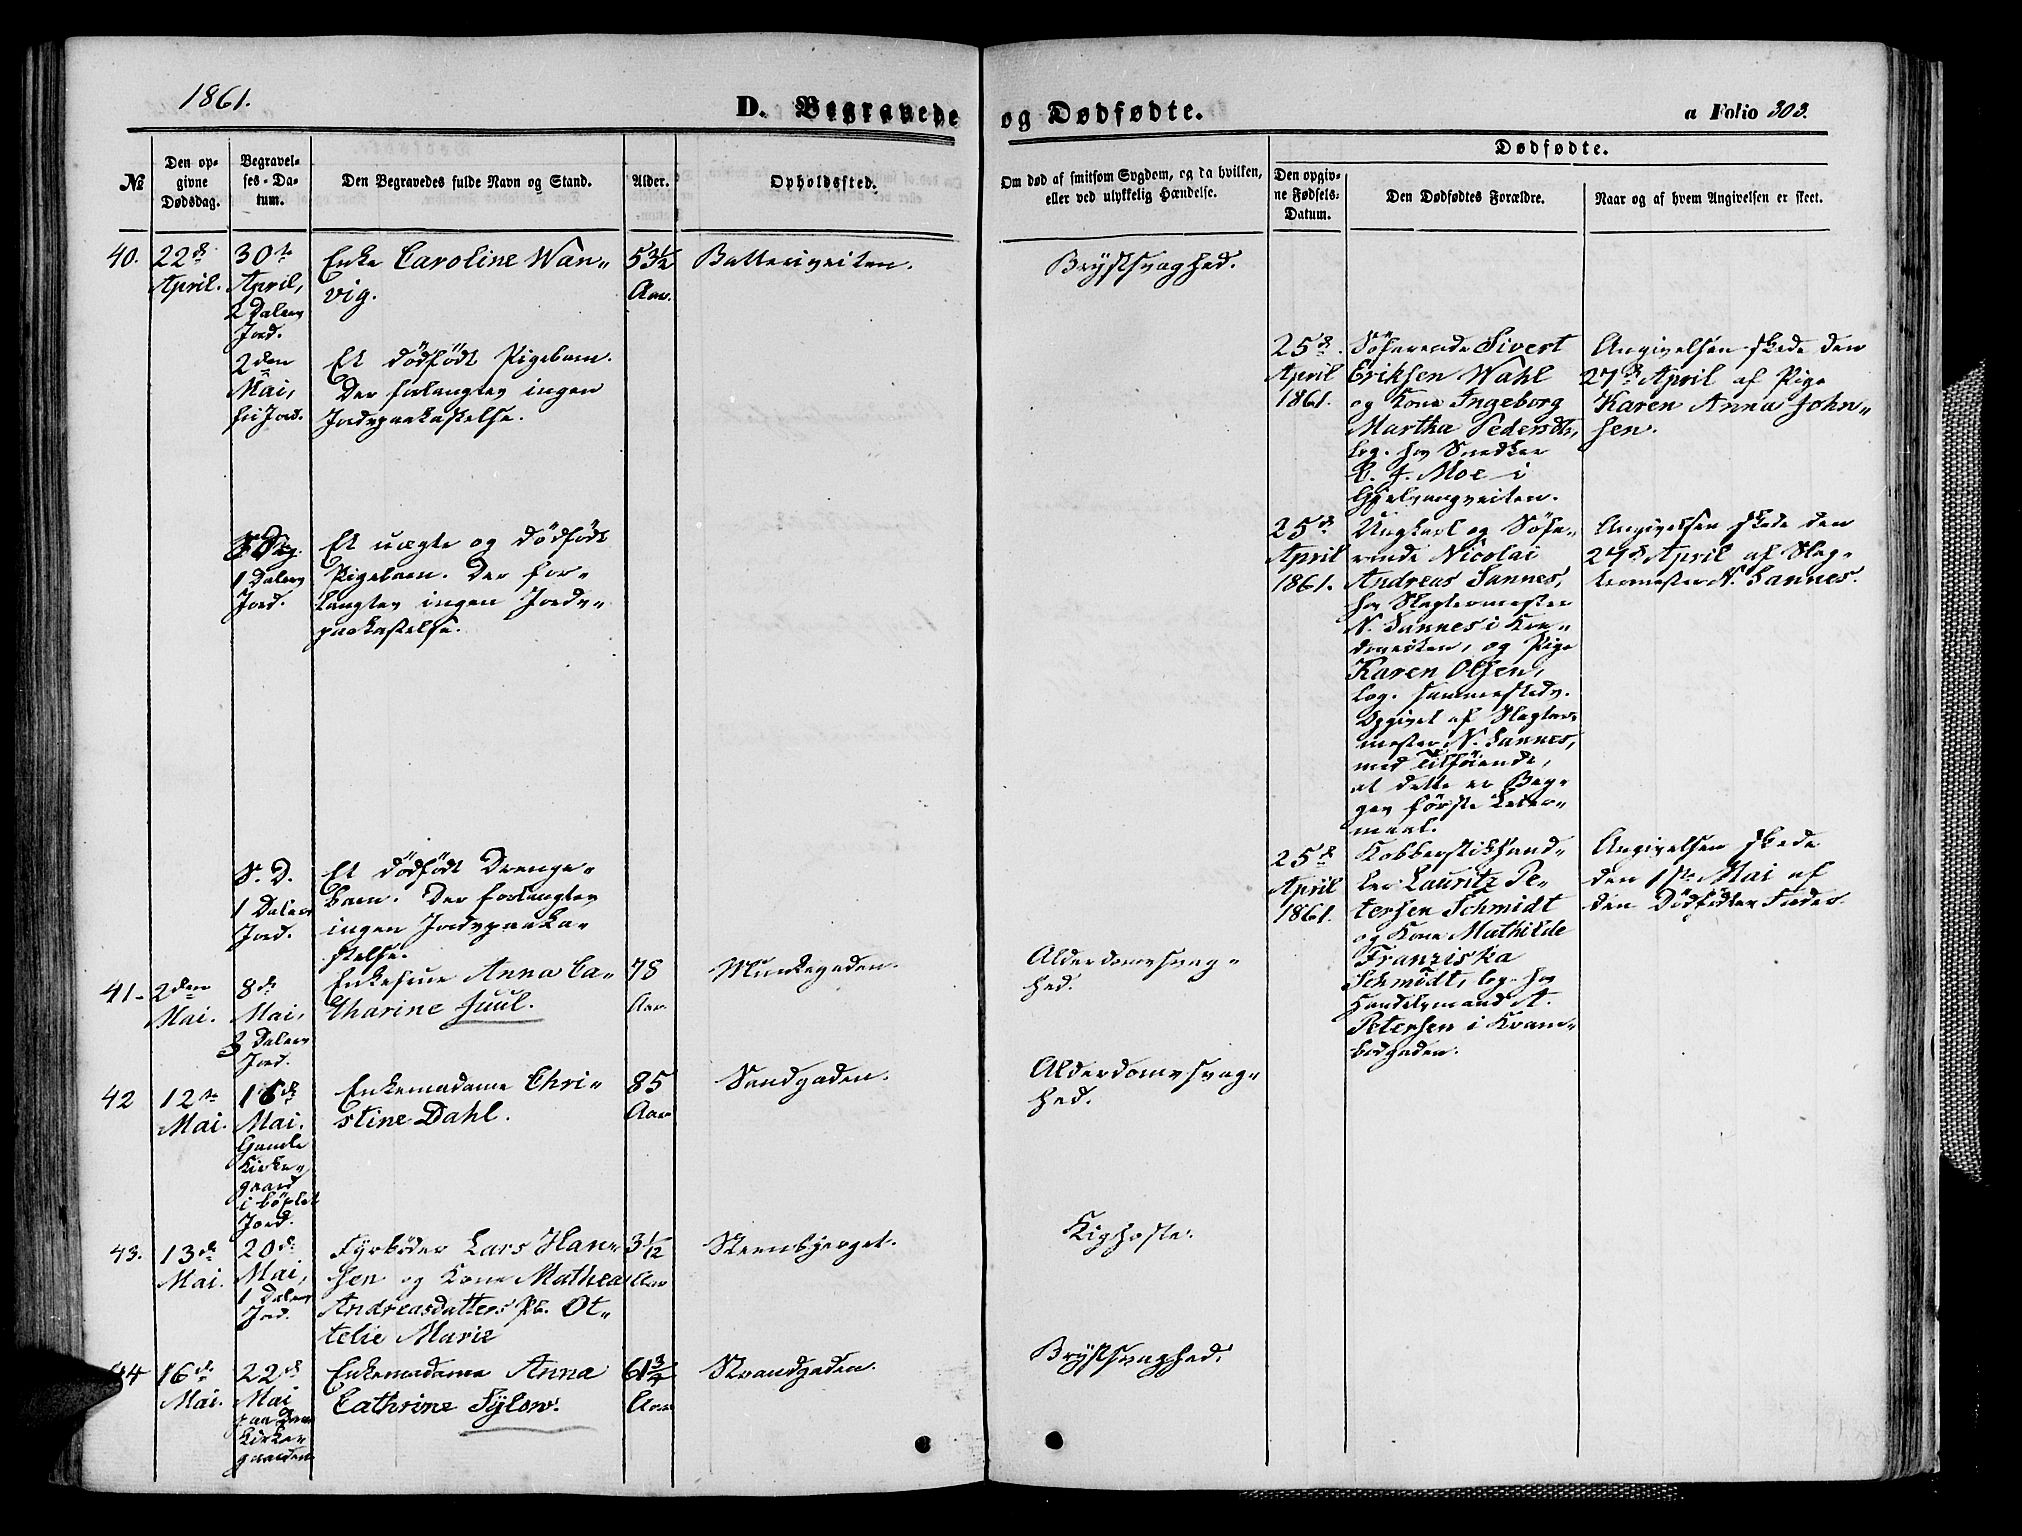 1861.
D. Begravede og Dødfødte.
a Folio 303.
№
Den op-
givne
Dødsdag.
Begravel-
ses-Da-
tum.
Den Begravedes fulde Navn og Stand.
Alder.
Opholdssted.
Om død af smitsom Sygdom, og da hvilken,
eller ved ulykkelig Hændelse.
Dødfødte.
Den opgiv-
ne Fødsels-
Datum.
Den Dødfødtes Forældre.
Naar og af hvem Angivelsen er skeet.
40.
22de
April.
30te
April,
2 Dalers
Jord.
Enke Caroline Wan-
vig.
53½
Aar.
Batteriveiten.
Brystsvaghed.
2den
Mai,
fri Jord.
Et dødfødt Pigebarn.
Der forlangtes ingen
Jordspaakastelse.
25de
April
1861.
Søfarende Sivert
Eriksen Wahl
og Kone Ingeborg
Martha Pedersdtr,
log. hos Snedker
J. Moe i
Gjelvangveiten.
Angivelsen skede den
27de April af Pige
Karen Anna John-
sen.
S. Dag.
1 Dalers
Jord.
Et uægte og dødfødt
Pigebarn. Der for-
langtes ingen Jords-
paakastelse.
25de
April
1861.
Ungkarl og Søfa-
rende Nicolai
Andreas Sannes,
hos Slagtermester
N. Sannes i
og Pige
Karen Olsen,
log. sammesteds.
Opgivet af Slagter-
mester N. Sannes,
med Tilføiende,
at dette er Beg-
ges første Leier-
maal.
Angivelsen skede den
27de April af Slag-
termester N. Sannes.
S. D.
1 Dalers
Jord.
Et dødfødt Drenge-
barn. Der forlangtes
ingen Jordspaaka-
stelse.
25de
April
1861.
Kobberstikhand-
ler Lauritz Pe-
tersen Schmidt
og Kone Mathilde
Franziska
Schmidt, log. hos
Handelsmand A.
Petersen i Kvam-
bodgaden.
Angivelsen skede
den 1ste Mai af
den Dødfødtes Fader.
41.
2den
Mai.
8de
Mai,
3 Dalers
Jord.
Enkefrue Anna Ca-
tharine Juul.
78
Aar
Munkegaden.
Alderdomssvag-
hed.
42
12te
Mai.
16de
Mai.
Gamle
Kirke-
gaard
i købt
Jord.
Enkemadame Chri-
stine Dahl.
85
Aar
Sandgaden.
Alderdomssvag-
hed.
43.
13de
Mai.
20de
Mai,
1 Dalers
Jord.
Fyrbøder Lars Han-
sen og Kone Mathea
Andreasdatters Pb. Ot-
telie Marie
3 1/12
Aar
Steenbjerget.
Kighoste.
44
16de
Mai.
22de
Mai
paa
Kirke-
gaarden
Enkemadame Anna
Cathrine Sylow.
61¾
Aar
Strandgaden.
Brystsvaghed.